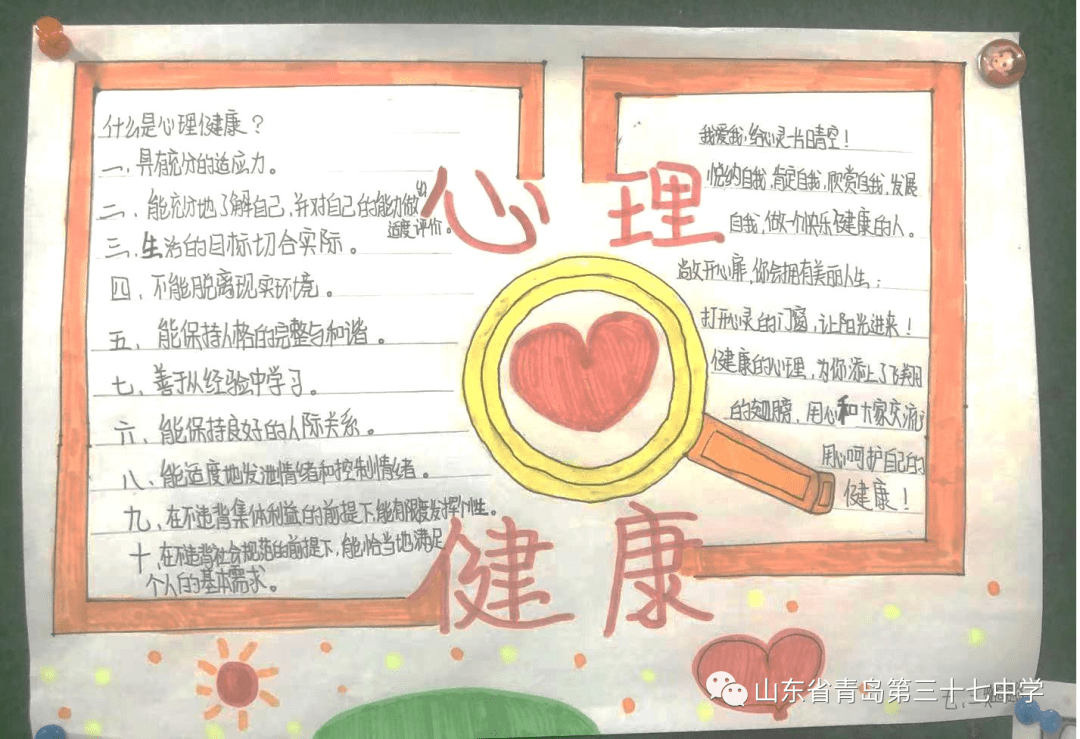 什么是心理健康？
一、具有充分的适应力。
二、能充分地了解自己，并对自己的能力做出
适度评价。
三、生活的目标切合实际。
四、不能脱离现实环境。
五、能保持人格的完整与和谐。
七、善于从经验中学习。
六、能保持良好的人际关系。
八、能适度地发泄情绪和控制情绪。
九、在不违背集体利益的前提下，能有限度发挥个性。
十、在不违背社会规范的前提下，能恰当地满足
个人的基本需求。
心理
健康
我爱我，给心灵一片日青空！
悦纳自我，肯定自我，欣赏自我，发展
自我，做一个快乐健康的人。
尚放开心扉，你会拥有美丽人生；
打开心灵的门窗，让阳光进来！
健康的心理，为你添上了飞翔
的翅膀，用心和大家交流，
用心呵护自己的
健康！
山东省青岛第三十七中学